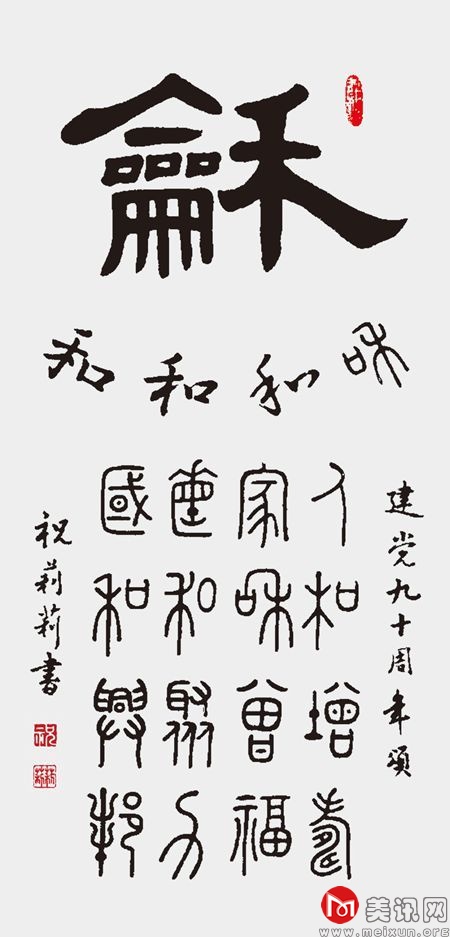 龢
咊和和和
建党九十周年頌
人和增壽
家咊曾福
和聚力
國和興邦
祝莉莉書
美讯网
www.meixun.org